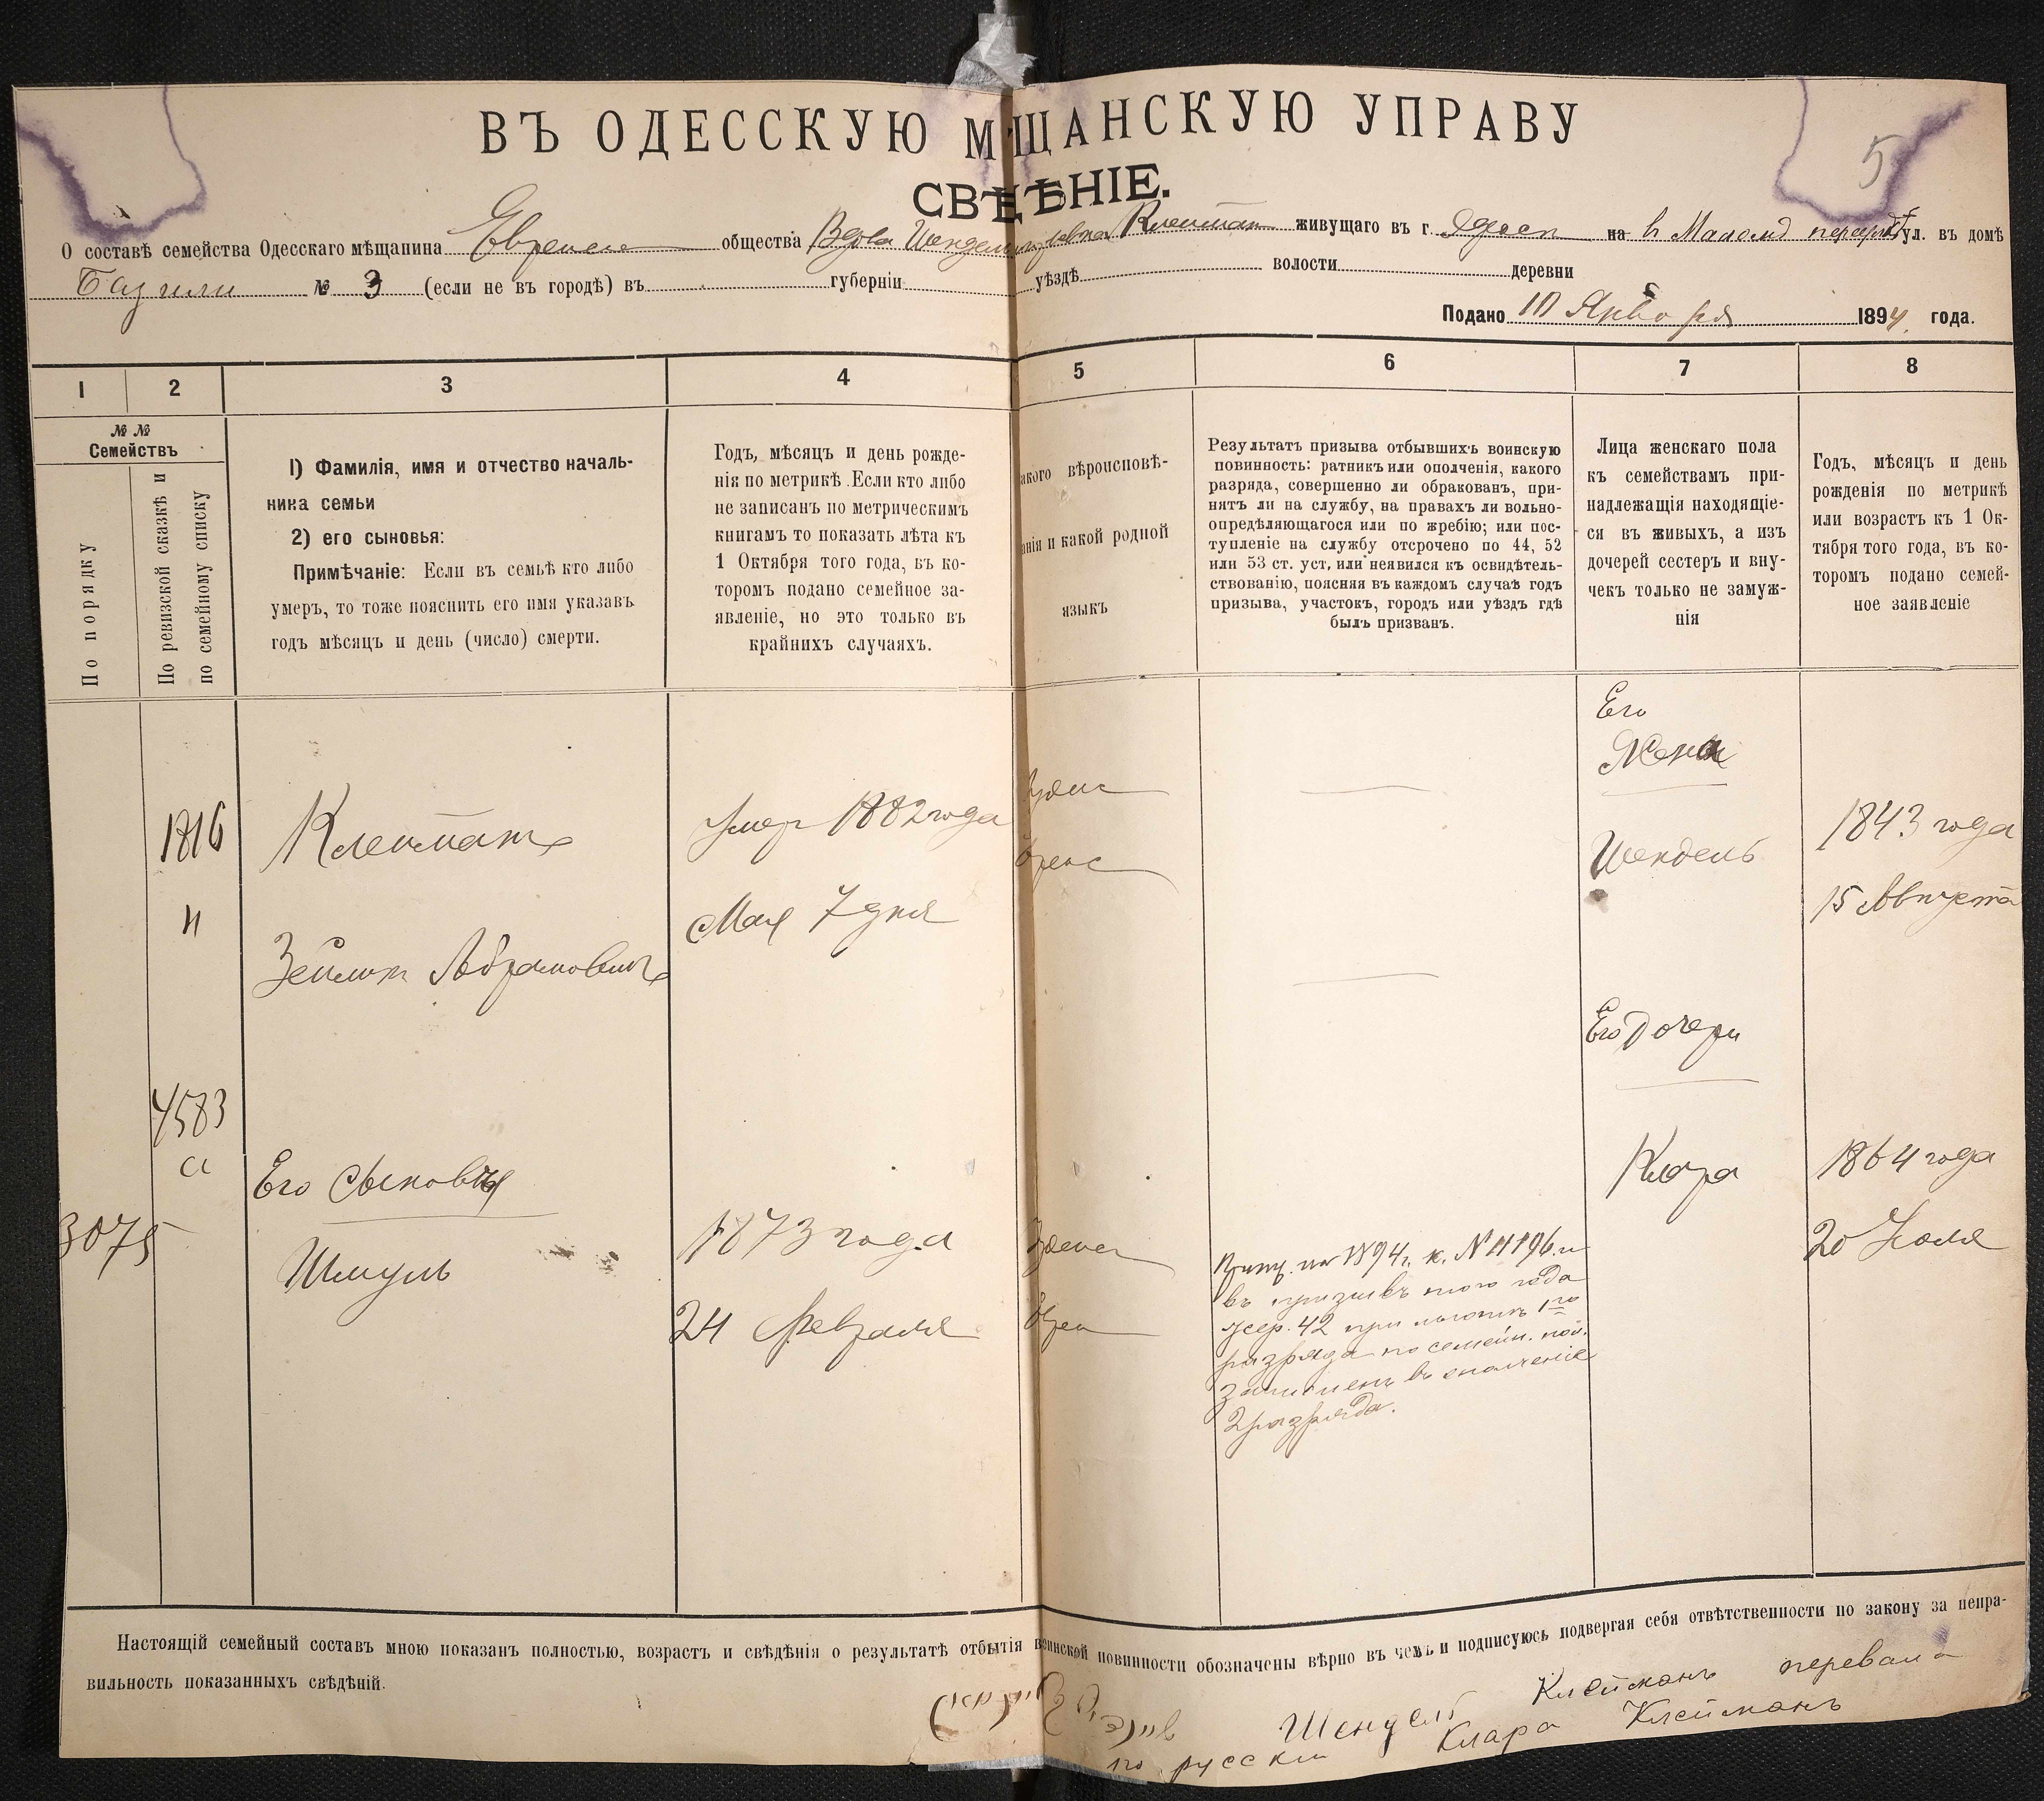 ВЪ ОДЕССКУЮ МЩАНСКУЮ УПРАВУ
5
СВѢѢНІЕ.
О составѣ семейства Одесскаго мѣщанина Еврейск общества Вдова Шендель Клейман живущаго въ г. Одесѣ на в Малом переул ул. въ домѣ
Базили № 3 (если не въ городѣ) въ губерніи уѣздѣ волости деревни
Подано 10 Января 1894 года.
1 2 3 4 5 6 7 8
№ №
Семействъ
По порядку
По ревизской сказкѣ и
по семейному списку
1) Фамилія, имя и отчество началь-
ника семьи
2) его сыновья:
Примѣчаніе: Если въ семьѣ кто либо
умеръ, то тоже пояснить его имя указавъ
годъ мѣсяцъ и день (число) смерти.
Годъ, мѣсяцъ и день рожде-
нія по метрикѣ. Если кто либо
не записанъ по метрическимъ
книгамъ то показать лѣта къ
1 Октября того года, въ ко-
торомъ подано семейное за-
явленіе, но это только въ
крайнихъ случаяхъ.
акого вѣроисповѣ-
анія и какой родной
языкъ
Результатъ призыва отбывшихъ воинскую
повинность: ратникъ или ополченія, какого
разряда, совершенно ли обракованъ, при-
нятъ ли на службу, на правахъ ли вольно-
опредѣляющагося или по жребію; или пос-
тупленіе на службу отсрочено по 44, 52
или 53 ст. уст, или неявился къ освидѣтель-
ствованію, поясняя въ каждомъ случаѣ годъ
призыва, участокъ, городъ или уѣздъ гдѣ
былъ призванъ.
Лица женскаго пола
къ семействамъ при-
надлежащія находящіе-
ся въ живыхъ, а изъ
дочерей сестеръ и вну-
чекъ только не замуж-
нія
Годъ, мѣсяцъ и день
рожденія по метрикѣ
или возрастъ къ 1 Ок-
тября того года, въ ко-
торомъ подано семей-
ное заявленіе
Его
Жена
1816
Клейманъ
Умер 1882 года
Иудейс
Шендель
1843 года
и
Еврейс
Мая 7 дня
15 Августа
Зейлик Абрамовичъ
Его Дочери
4583
а
Его Сыновья
Клара
1864 года
3075
Шмуль
1873 года
Иудейс
20 Іюля
24 Февраля
Еврей
Прип. на 1894 г. к. N 4196. и
въ призывъ того года
жер. 42 при льготѣ 1го
разряда по семейн. пол.
зачисленъ въ ополченіе
2 разряда.
Настоящій семейный составъ мною показанъ полностью, возрастъ и свѣдѣнія о результатѣ отбытія воинской повинности обозначены вѣрно въ чемъ и подписуюсь подвергая себя отвѣтственности по закону за непра-
вильность показанныхъ свѣдѣній.
Шендель Клейманъ перевала
по русски Клара Клейманъ